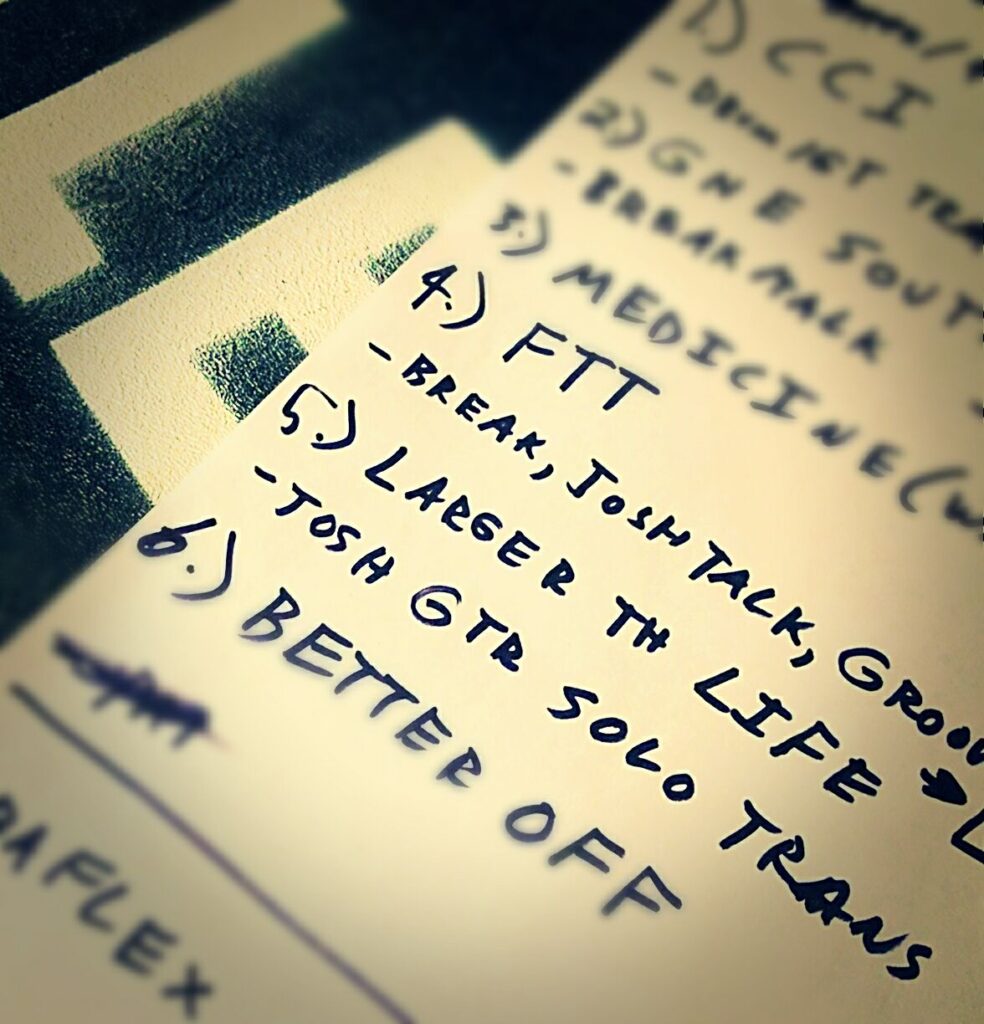 1.) CCI
2.) GNE SOUT
- BREAK/TALK
3.) MEDICINE (W
4.) FTT
- BREAK, JOSH TALK, GROOV
5.) LARGER TH LIFE →
- JOSH GTR SOLO TRANS
6.) BETTER OFF
AFLEX